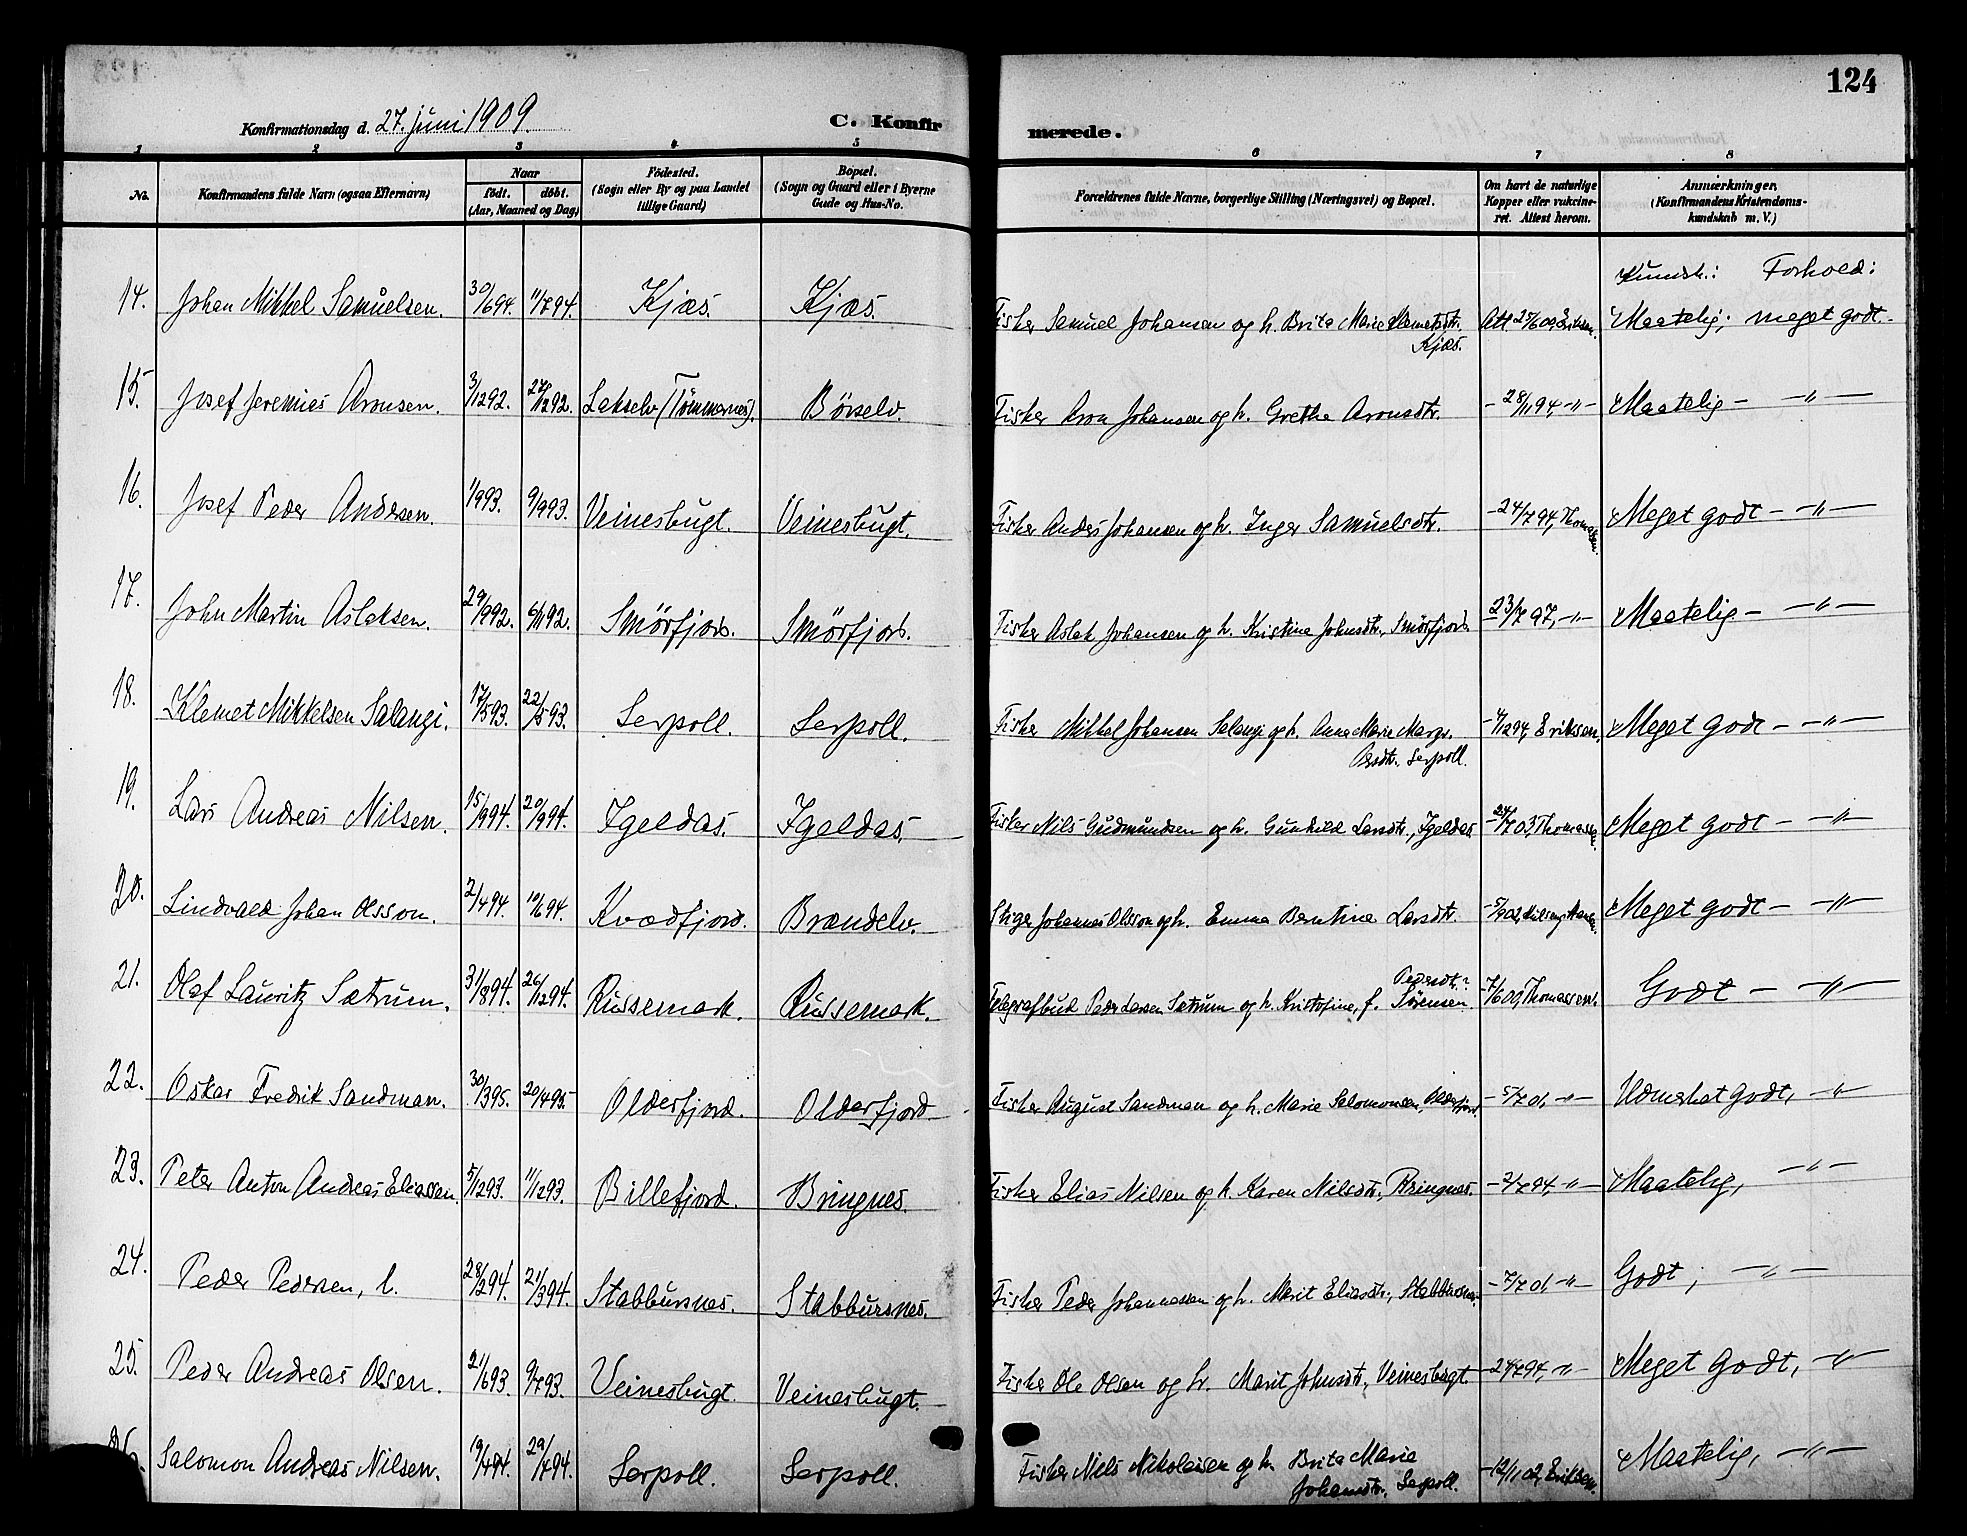 124
Konfirmationsdag d. 27. juni 1909. C. Konfirmerede.
1 2 3 4 5 6 7 8
No. Konfirmandens fulde Navn (ogsaa Efternavn) Naar født. døbt. (Aar, Maaned og Dag) Födested. (Sogn eller By og paa Landet tillige Gaard) Bopæl. (Sogn og Gaard eller i Byerne Gade og Hus-No. Forældrenes fulde Navne, borgerlige Stilling (Næringsvei) og Bopæl. Om havt de naturlige Kopper eller vaccineret. Attest herom. Anmærkninger. (Konfirmandens Kristendomskundskab m. V.)
Kundsk.: Forhold:
14. Johan Mikkel Samuelsen. 30/694. 11/794. Kjæs. Kjæs. Fisker Samuel Johansen og h. Brita Marie Klemetsdtr. Kjæs. Att 25/609 Eriksen. Maatelig; meget godt.
15. Josef Jeremias Aronsen. 3/1292. 27/1292. Lakselv (Tømmernes). Børselv. Fisker Aron Johansen og h. Grethe Aronsdtr. - 28/1194 -"- Maatelig - -"-
16. Josef Peder Andersen. 1/993. 9/993. Veinesbugt. Veinesbugt. Fisker Anders Johansen og h. Inger Samuelsdtr. - 24/794, Thomassen. Meget godt - -"-
17. John Martin Aslaksen. 29/992. 6/1192. Smörfjord. Smörfjord. Fisker Aslak Johansen og h. Kristine Johnsdtr., Smörfjord. - 23/797, -"- Maatelig - -"-
18. Klemet Mikkelsen Salangi. 17/593. 22/593. Serpoll. Serpoll. Fisker Mikkel Johansen Salangi og h. Anna Marie Margr. Persdtr. Serpoll. - 4/1294, Eriksen. Meget godt - -"-
19. Lars Andreas Nilsen. 15/994. 20/994. Igeldas. Igeldas. Fisker Nils Gudmundsen og h. Gunhild Larsdtr., Igeldas - 24/703, Thomassen. Meget godt - -"-
20. Lindvald Johan Olsson. 2/494. 10/694. Kvædfjord. Brændelv. Stiger Johannes Olsson og h. Emma Berntine Larsdtr. Meget godt - -"-
21. Olaf Lauritz Sætrum. 31/894. 26/1294. Russemark. Russemark. Telegrafbud Peder Larsen Sætrum og h. Kristofine, f. Pedersdtr.? Sörensen. - 7/609, Thomassen. Godt - -"-
22. Oskar Fredrik Sandman. 30/395. 20/495. Olderfjord. Olderfjord Fisker August Sandman og h. Marie Salomonsen, Olderfjord. - 5/701, -"- Udmerket godt, -"-
23. Peter Anton Andreas Eliassen. 5/1293. 11/1293. Billefjord. Bringnes. Fisker Elias Nilsen og h. Karen Nilsdtr., Bringnes. - 2/794, -"- Maatelig, -"-
24. Peder Pedersen, l. 28/294. 21/394. Stabbursnes. Stabbursnes. Fisker Peder Johannessen og h. Marit Eliasdtr., Stabbursnes. - 7/701, -"- Godt; -"-
25. Peder Andreas Olsen. 21/693. 9/793. Veinesbugt. Veinesbugt. Fisker Ole Olsen og h. Marit Johnsdtr., Veinesbugt. - 24/794, -"- Meget godt, -"-
26. Salomon Andreas Nilsen. 19/494. 29/794. Serpoll. Serpoll. Fisker Nils Nikolaisen og h. Brita Marie Johansdtr., Serpoll. - 12/1102, Eriksen. Maatelig, -"-